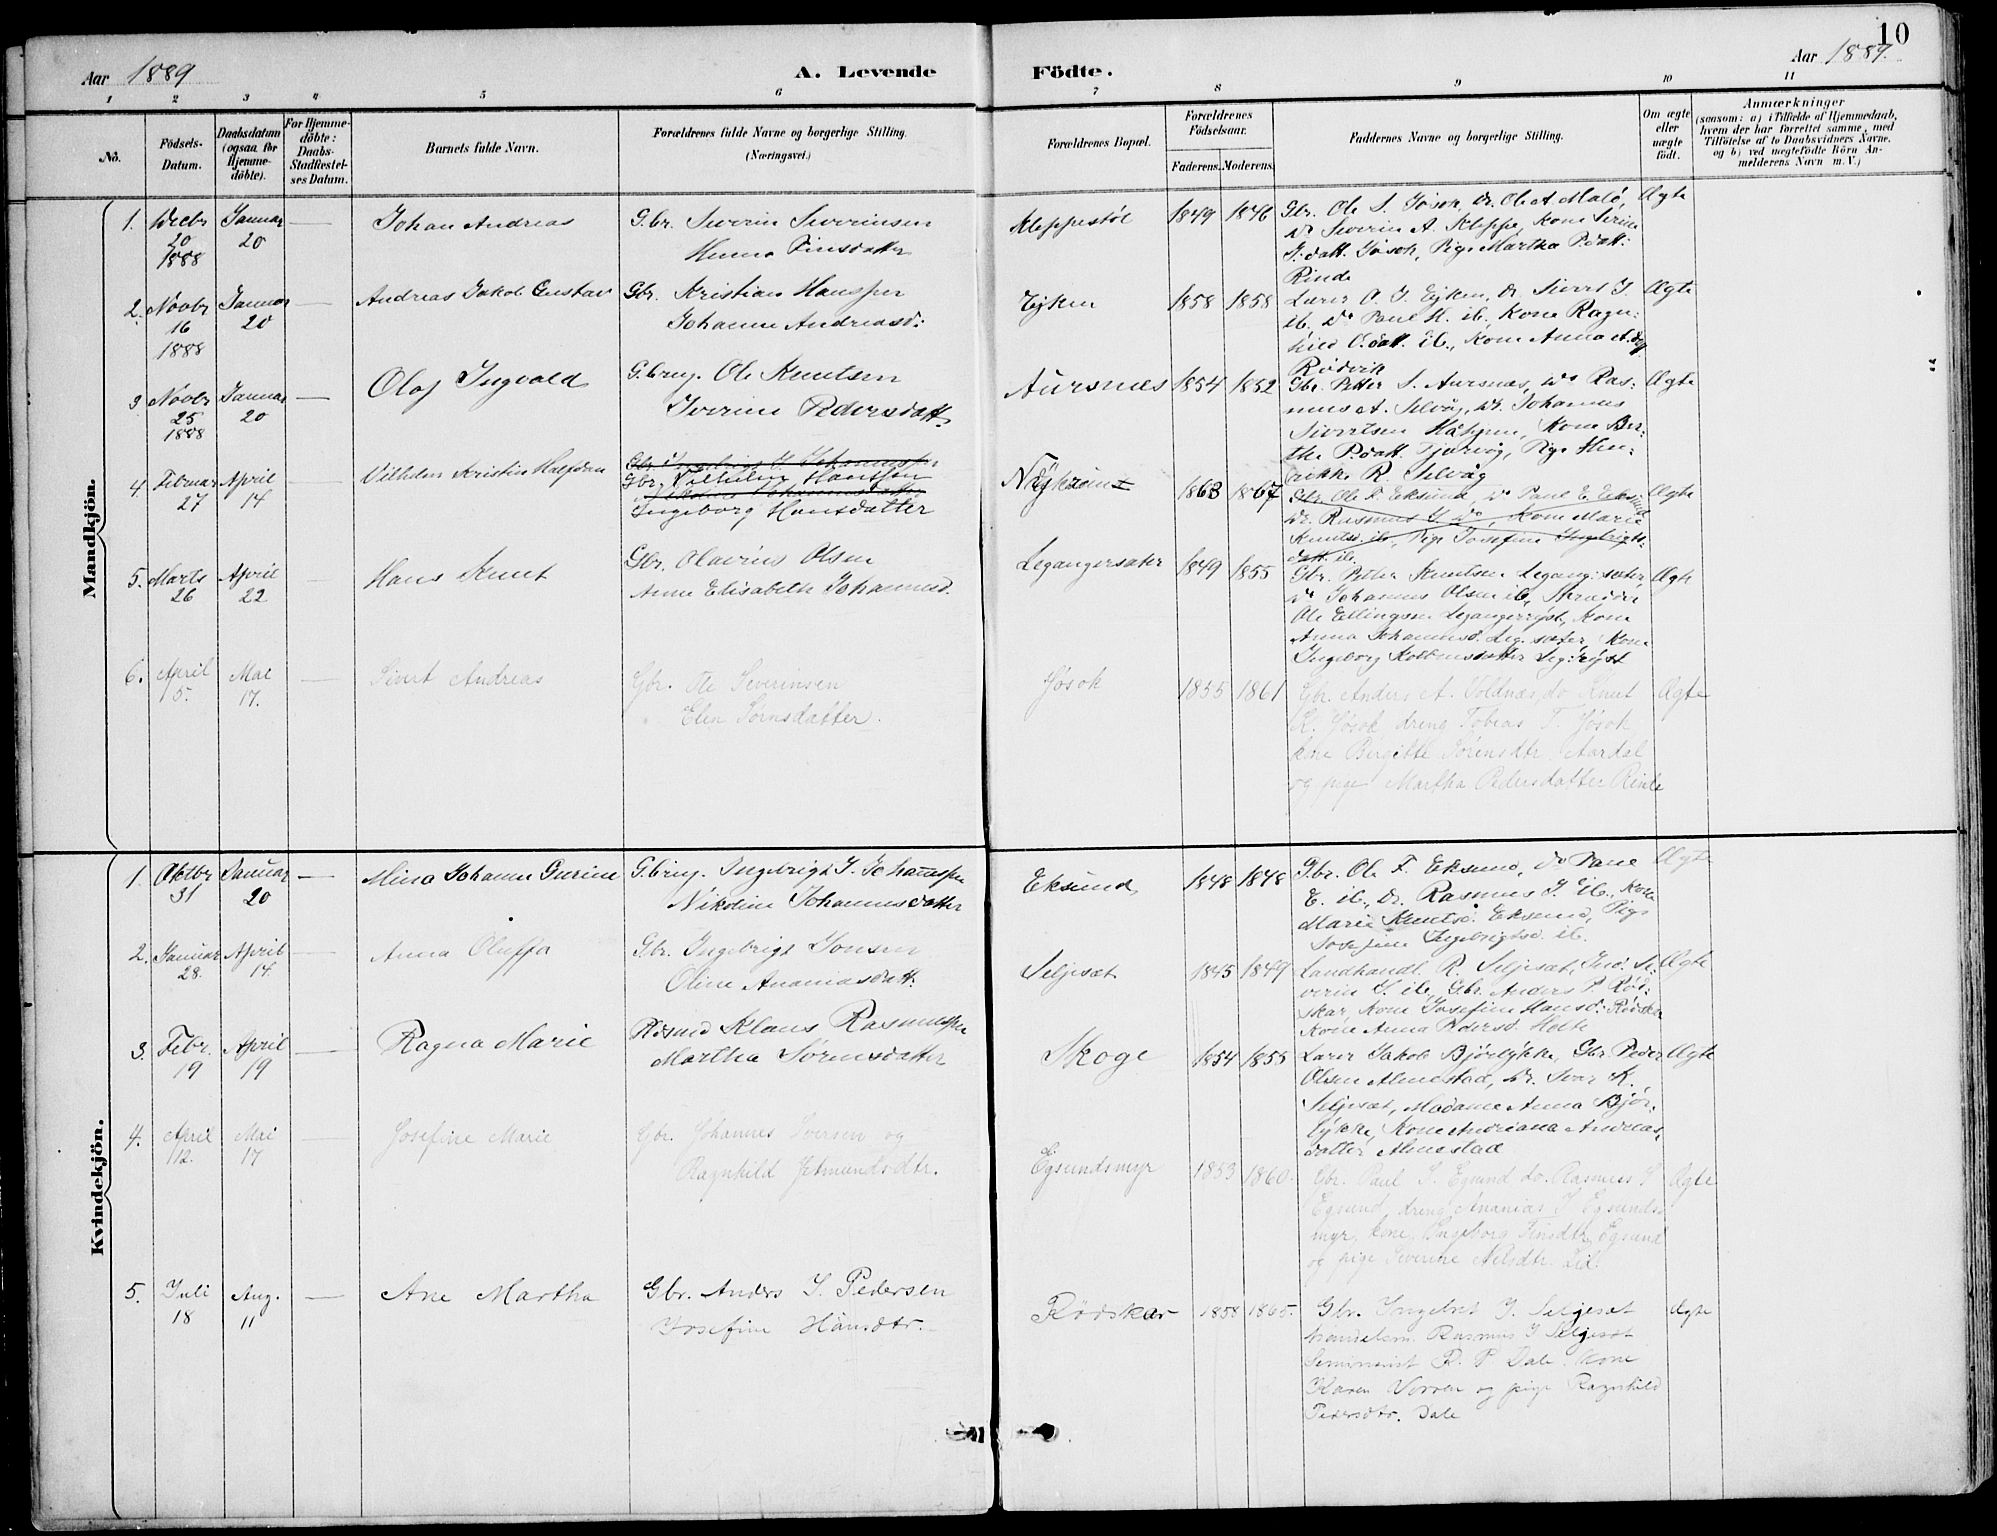 10
Aar 1889
A. Levende
Födte.
Aar 1889.
1 2 3 4 5 6 7 8 9 10 11
No.
Födsels-
Datum.
Daabsdatum
(ogsaa for
Hjemme-
döbte).
For Hjemme-
döbte:
Daabs-
Stadfæstel-
ses Datum.
Barnets fulde Navn.
Forældrenes fulde Navne og borgerlige Stilling.
(Næringsvei.)
Forældrenes Bopæl.
Forældrenes
Födselsaar.
Faderens. Moderens.
Faddernes Navne og borgerlige Stilling.
Om ægte
eller
uægte
födt.
Anmærkninger
(saasom: a) i Tilfælde af Hjemmedaab,
hvem der har forrettet samme, med
Tilföielse af to Daabsvidners Navne,
og b) ved uægtefödte Börn An-
melderens Navn m. V.)
Mandkjön.
1. Decbr 20 1888 Januar 20 — Johan Andreas
Gbr. Severin Severinsen
Finsdatter
Kleppestøl 1849 1846
Gbr. Ole S. Jøsok, Do. Ole A. Malø,
Do Severin A. Kleppe, Kone Serine
S. datt. Jøsok, Pige Martha P.datt:
Rinde
Ægte
2. Novbr 16 1888 Januar 20 — Andreas Jakob Gustav
Gbr. Kristian Hanssen
Johanne Andreasd:
Ejken 1858 1858
Lærer O. J. Ejken, Do Sivert J.
ib, Do Paul H. ib, Kone Ragn:
hild O.datt. ib., Kone Anna A.
Rødvik
Ægte
3 Novbr 25 1888 Januar 20 — Olaf Ingvald
Gbrug. Ole Knutsen
Iverine Pedersdatt.
Aursnæs 1854 1852
Gbr. Petter S. Aursnæs, Do Ras:
mus A. Selvåg, Do. Johannes
Sivertsen Håhjem, Kone Ber:
the P.datt. Tjørvåg, Pige Hen:
rikke R. Selvåg
Ægte
4. Februar 27 April 14 Vilhelm Kristin Halfdan
Gbr. Ingebrigt J. Johannessen
Gbr. Vilhelm Hantsen
Nikoline Johannesdatter
Ingeborg Hansdatter
1863 1867
Gbr. Ole F. Eksund, Do Paul E. Eksund
Do. Rasmus J. Do, Kone Marie
Knuts. ib., Pige Josefine Ingebrigts:
datt. ib.
Ægte
5. Marts 26 April 22 — Hans Knut
Gbr. Olavius Olsen
Anne Elisabeth Johannesd.
Legangersæter 1849 1855
Gbr. Petter Knutsen Legang:sæter,
Do Johannes Olsen ib, Skrædder
Ole Ellingsen Legangerrøyst, Kone
Anna Johannesd. Leg.sæter, Kone
Ingeborg Kolbensdatter Leg:røyst
Ægte
6. April 5. Mai 17. — Sivert Andreas
Gbr. Ole Severinsen
Elen Sørnsdatter.
Jøsok 1855 1861
Gbr. Anders A. Voldnæs, do Knut
K. Jøsok dreng Tobias T. Jøsok
kone Bergitte Sørensdtr. Aardal
og pige Martha Pedersdatter Rinde
Ægte
Kvindekjön.
1. Oktbr 31 Januar 20 — Mina Johanne Gurine
Gbrug. Ingebrigt J. Johannssen
Nikoline Johannesdatter
Eksund 1848 1848
Gbr. Ole F. Eksund, Do Paul
E. ib., Do. Rasmus J. ib., Kone
Marie Knutsd. Eksund, Pige
Josefine Ingebrigtsd. ib.
Ægte
2. Januar 28. April 14 — Anna Oluffa
Gbr. Ingebrigt Jonsen
Oline Ananiasdatt.
Seljesæt 1845 1849
Landhandl. R. Seljesæt, Ind. Se:
verin S. ib, Gbr. Anders P. Rød:
skar, Kone Josefine Hansd: Rødskar
Kone Anna Pedersd. Hede
Ægte
3. Febr. 19 April 19 — Ragna Marie
Klaus Rasmussen
Martha Sørensdatter
Skoge 1854 1855
Lærer Jakob Bjørløkke, Gbr. Peder
Olsen Almestad, Do. Ivar K.
Seljesæt, Madame Anna Bjør:
løkke, Kone Andriana Andreas:
datter Almestad
Ægte
4. April 12. Mai 17 — Josefine Marie
Gbr. Johannes Iversen og
Ragnhild Jetmundsdtr.
Egsundsmyr 1853 1860.
Gbr. Paul J. Egsund do. Rasmus J
Egsund, dreng Ananias J. Egsunds
myr, kone Ingeborg Finsdtr. Egsund
og pige Severine Nilsdtr. Lid.
Ægte
5. Juli 18 Aug. 11 — Ane Martha
Gbr. Anders J. Pedersen
Josefine Hansdtr.
Rødskar 1858 1865.
Gbr. Ingebret J. Seljesæt
handelsm. Rasmus J Seljesæt
Seminarist R. P. Dale. kone
Karen Vorren og pige Ragnhild
Pedersdtr. Dale
Ægte